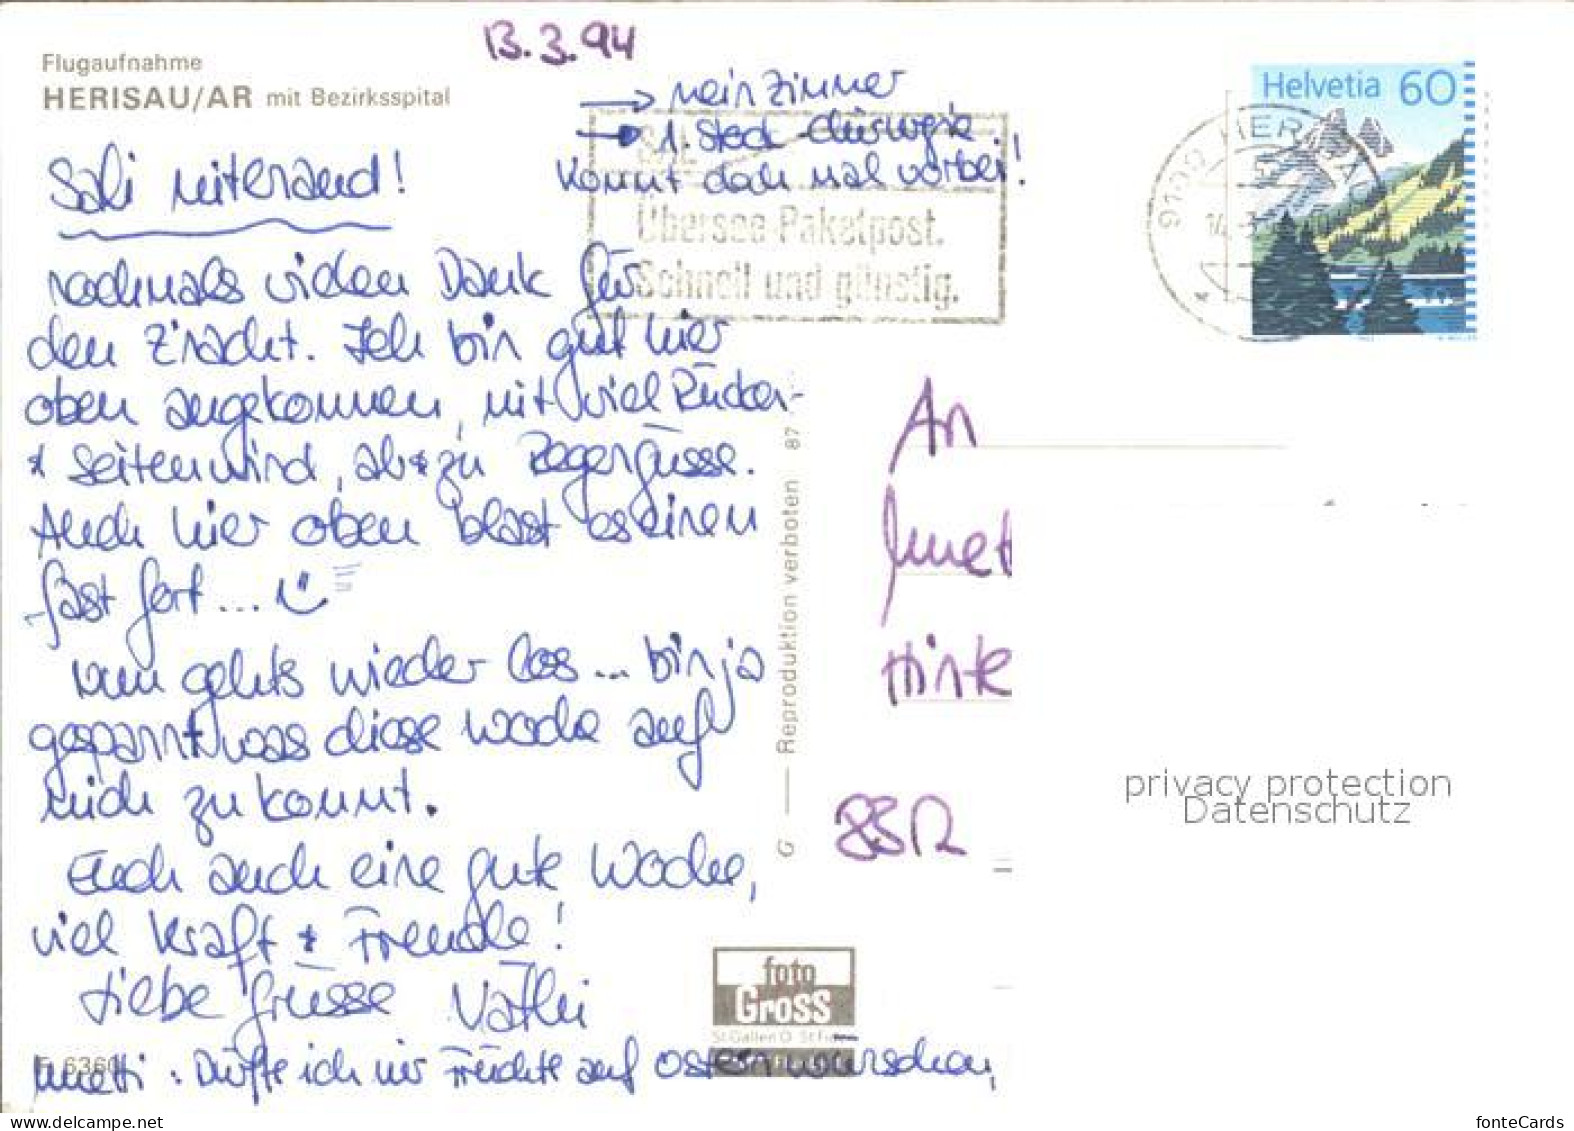 13.3.94
Flugaufnahme
HERISAU/AR mit Bezirksspital
→ mein Zimmer
→ 1. Stock Chirurgie
Kommt doch mal vorbei!
Helvetia 60
9100 HERISAU
Übersee-Paketpost.
Schnell und günstig.
Sali miterand!
nochmals vielen Dank für
den Z'nacht. Ich bin gut hier
oben angekommen, mit viel Rücken-
+ Seitenwind, ab + zu Regengüsse.
Auch hier oben blast es einen
fast fort...
nun gehts wieder los... bin ja
gespannt was diese Woche auf
mich zu kommt.
Euch auch eine gute Woche,
viel Kraft + Freude!
Liebe Grüsse
: Dürfte ich mir Früchte auf Ostern wünschen,
An
Hinte
G — Reproduktion verboten 87
foto
Gross
St. Gallen O St. Fiden
privacy protection
Datenschutz
www.delcampe.net
fonteCards